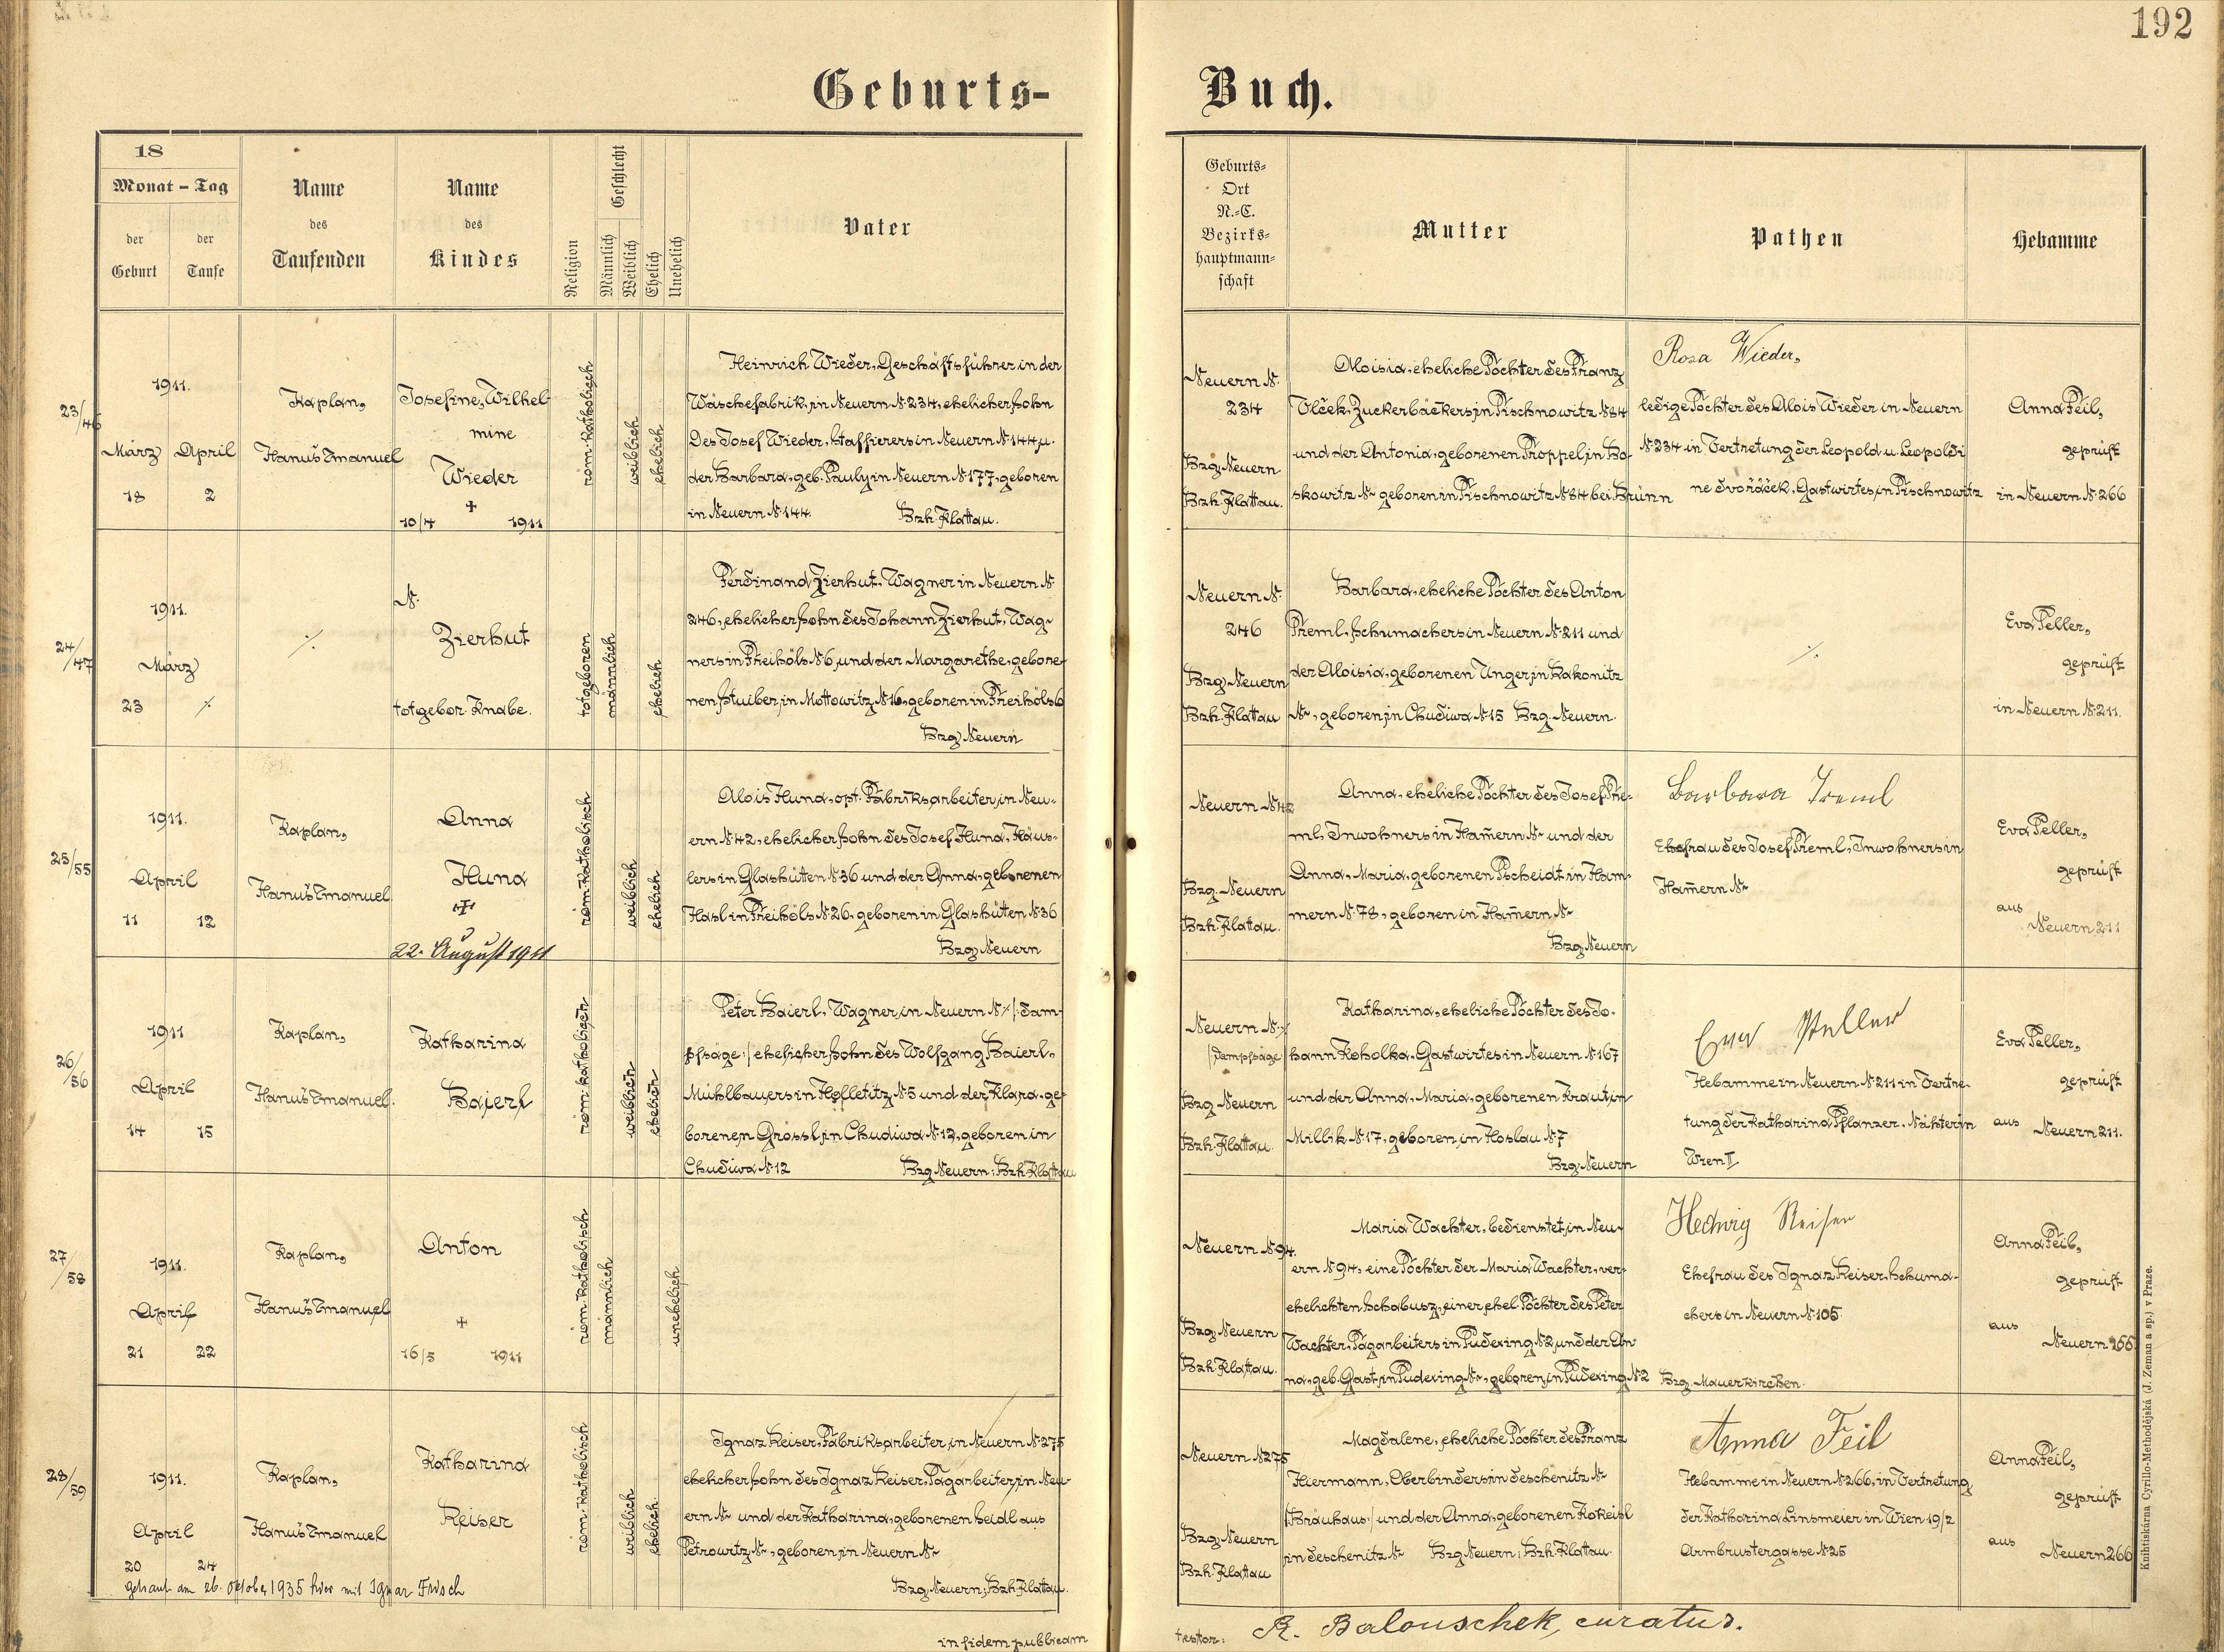 192
Geburts-Buch.
18
Monat - Tag
der Geburt
der Taufe
Name des Taufenden
Name des Kindes
Religion
Geschlecht
Männlich
Weiblich
Ehelich
Unehelich
Vater
Geburts-
Ort
N.-C.
Bezirks-
hauptmann-
schaft
Mutter
Pathen
Hebamme
23/46
1911.
März April
18 2
Kaplan,
Hanuš Emanuel
Josefine, Wilhel-
mine
Wieder
+
10/4 1911
röm. katholisch
weiblich
ehelich
Heinrich Wieder, Geschäftsführer in der
Wäschefabrik, in Neuern N. 234, ehelicher Sohn
Des Josef Wieder, Staffierers in Neuern N. 144 u.
der Barbara, geb. Pauly in Neuern N. 177, geboren
in Neuern N. 144. Bzh. Klattau.
Neuern N.
234
Bzg. Neuern
Bzh. Klattau.
Aloisia, eheliche Tochter des Franz
Vlček, Zuckerbäckers, in Tischnowitz N. 84
und der Antonia, geborenen Proppel, in Bo-
skowitz N. geboren in Tischnowitz N. 84 bei Brünn
Rosa Wieder,
ledige Tochter des Alois Wieder in Neuern
N. 234 in Vertretung der Leopold u. Leopoldi
ne Dvořáček, Gastwirtes, in Tischnowitz
Anna Feil,
geprüft
in Neuern N. 266
24/47
1911.
März
23 ./.
./.
N.
Zierhut
totgebor. Knabe.
totgeboren
männlich
ehelich
Ferdinand Zierhut, Wagner in Neuern N.
246, ehelicher Sohn des Johann Zierhut, Wag-
ners in Freihöls N. 6, und der Margarethe, gebore-
nen Stuiber, in Mottowitz N. 16, geboren in Freihöls 6
Bzg. Neuern
Neuern N.
246
Bzg. Neuern
Bzh. Klattau
Barbara, eheliche Tochter des Anton
Treml, Schumachers in Neuern N. 211 und
der Aloisia, geborenen Unger, in Rakonitz
N., geboren, in Chudiwa N. 15 Bzg. Neuern.
./.
Eva Peller,
geprüft
in Neuern N. 211.
25/55
1911.
April
11 12
Kaplan,
Hanuš Emanuel
Anna
Hund
+
22. August 1911
röm. katholisch
weiblich
ehelich
Alois Hund, opt. Fabriksarbeiter, in Neu-
ern N. 42, ehelicher Sohn des Josef Hund, Häus-
lers in Glashütten N. 36 und der Anna, geborenen
Hasl in Freihöls N. 26, geboren in Glashütten N. 36
Bzg. Neuern
Neuern N. 42
Bzg. Neuern
Bzh. Klattau.
Anna, eheliche Tochter des Josef Tre-
ml, Inwohners in Ham̄ern N. und der
Anna, Maria, geborenen Tscheidt in Ham-
mern N. 78, geboren in Ham̄ern N.
Bzg. Neuern
Barbara Treml
Ehefrau des Josef Treml, Inwohners in
Ham̄ern N.
Eva Peller,
geprüft
aus
Neuern 211
26/56
1911
April
14 15
Kaplan,
Hanuš Emanuel.
Katharina
Baierl
röm. katholisch
weiblich
ehelich
Peter Baierl, Wagner, in Neuern N. ./. /: Dam-
pfsäge :/ ehelicher Sohn des Wolfgang Baierl,
Mühlbauers in Hofletitz N. 5 und der Klara, ge-
borenen Grössl, in Chudiwa N. 12, geboren in
Chudiwa N. 12 Bzg. Neuern; Bzh. Klattau
Neuern N. ./.
/Dampfsäge
Bzg. Neuern
Bzh. Klattau.
Katharina, eheliche Tochter des Jo-
hann Koholka, Gastwirtes in Neuern N. 167
und der Anna, Maria, geborenen Kraut, in
Millik N. 17, geboren, in Hoslau N. 7
Bzg. Neuern
Eva Peller
Hebamme in Neuern N. 211 in Vertre-
tung der Katharina Pflanzer, Nähterin
Wien II
Eva Peller,
geprüft
aus Neuern 211.
27/58
1911.
April
21 22
Kaplan,
Hanuš Emanuel
Anton
+
16/5 1911
röm. katholisch
männlich
unehelich
Neuern N. 94.
Bzg. Neuern
Bzh. Klattau.
Maria Wachter, bedienstet, in Neu-
ern N. 94, eine Tochter der Maria Wachter, ver-
ehelichten Schabusz, einer ehel. Tochter des Peter
Wachter, Tagarbeiters in Pudexing N. 2, und der An-
na, geb. Gast, in Pudexing N., geboren, in Pudexing N. 2
Hedwig Reiser
Ehefrau des Ignaz Reiser, Schuma-
chers in Neuern N. 105.
Bzg. Mauerkirchen.
Anna Feil,
geprüft
aus
Neuern 266.
28/59
1911.
April
20 24
Kaplan,
Hanuš Emanuel
Katharina
Reiser
röm. katholisch
weiblich
ehelich.
Ignaz Reiser, Fabriksarbeiter, in Neuern N. 275
ehelicher Sohn des Ignaz Reiser, Tagarbeiter, in Neu-
ern N. und der Katharina, geborenen Seidl aus
Petrowitz N., geboren, in Neuern N.
Bzg. Neuern; Bzh. Klattau.
getraut am 26. Oktober 1935 hier mit Ignaz Frisch
Neuern N. 275
Bzg. Neuern
Bzh. Klattau
Magdalene, eheliche Tochter des Franz
Hiermann, Oberbinders in Deschenitz N.
/Bräuhaus/ und der Anna, geborenen Kokeisl
in Deschenitz N. Bzg. Neuern; Bzh. Klattau.
Anna Feil
Hebamme in Neuern N. 266, in Vertretung
der Katharina Linsmeier in Wien 19/2
Armbrustergasse N. 25
Anna Feil,
geprüft
aus Neuern 266
in fidem publicam
testor: R. Balouschek, curatus.
Knihtiskárna Cyrillo-Methodějská (J. Zeman a sp.) v Praze.